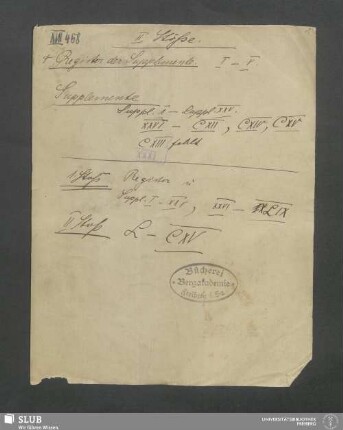 XVII 468
II Stöße.
+ Register der Supplemente I – V
Supplemente
Suppl. I – Suppl. XXV.
XXVI – CXII, CXIV, CXV
CXIII fehlt
I Stoß Register u
Suppl. I – XXV, XXVI – XLIX
II Stoß L – CXV
Bücherei
Bergakademie
Freiberg i. Sa.
SLUB
Wir führen Wissen.
UNIVERSITÄTSBIBLIOTHEK
FREIBERG